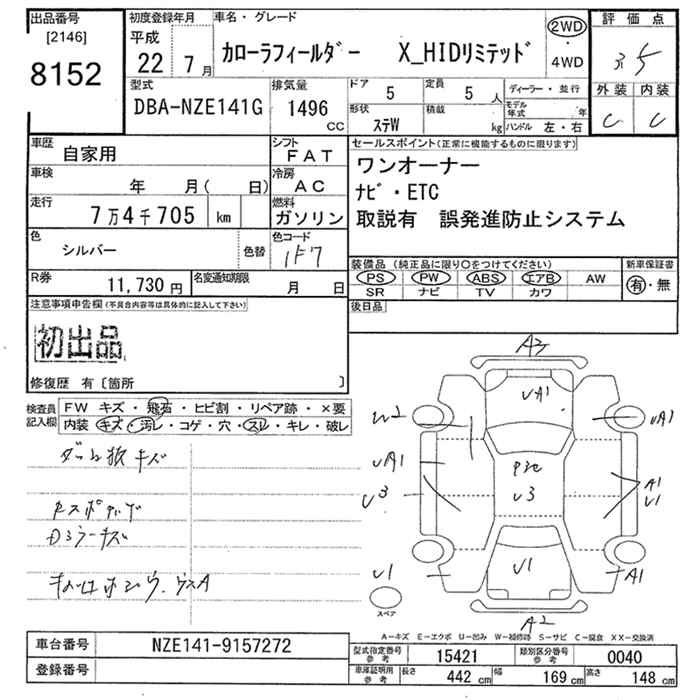 出品番号 初度登録年月 車名・グレード 評価点
[2146] 平成
8152 22年 7月 カローラフィールダー X_HIDリミテッド 2WD・4WD 3.5
型式 排気量 ドア 定員 ディーラー・並行 外装 内装
DBA-NZE141G 1496 CC 5 5人 モデル年式 年 C C
形状 積載 kg ハンドル 左・右
ステW
車歴 自家用 シフト FAT セールスポイント(正常に機能するものに限ります)
車検 年 月( 日) 冷房 AC ワンオーナー
走行 7万4千705 km 燃料 ガソリン ナビ・ETC
取説有 誤発進防止システム
色 シルバー 色替 色コード 1F7
装備品(純正品に限り○をつけてください) 新車保証書
R券 11,730円 名変通知期限 月 日 PS PW ABS エアB AW 有・無
SR ナビ TV カワ
注意事項申告欄(不具合内容等は具体的に記入して下さい) 後日品
初出品
修復歴 有〔箇所 〕
検査員記入欄 FW キズ・飛石・ヒビ割・リペア跡・×要
内装 キズ・汚レ・コゲ・穴・スレ・キレ・破レ
A3
UA1
W2 UA1
UA1
U3 U3 A1
U1
U1 U1 A1
スペア
A2
A-キズ E-エクボ U-凹み W-補修跡 S-サビ C-腐食 XX-交換済
車台番号 NZE141-9157272 型式指定番号 参考 15421 類別区分番号 参考 0040
登録番号 車庫証明用 参考 長さ 442 cm 幅 169 cm 高さ 148 cm